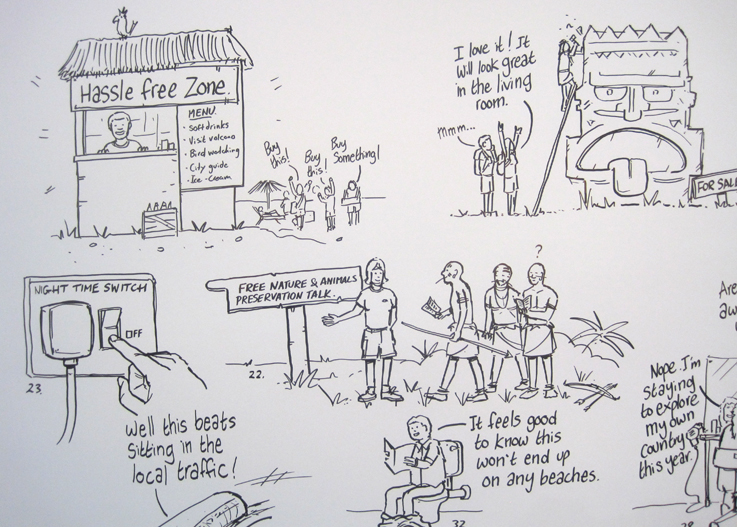 Hassle free Zone.
MENU.
• Soft drinks
• Visit volcano
• Bird watching
• City guide
• Ice-Cream
Buy
this!
Buy
this!
Buy
Something!
I love it! It
will look great
in the living
room.
mmm...
FOR SALE
NIGHT TIME SWITCH
OFF
23.
FREE NATURE & ANIMALS
PRESERVATION TALK.
22.
?
Well this beats
sitting in the
local traffic!
It feels good
to know this
won't end up
on any beaches.
32
Are
aw
Nope. I'm
staying
to explore
my own
country
this year.